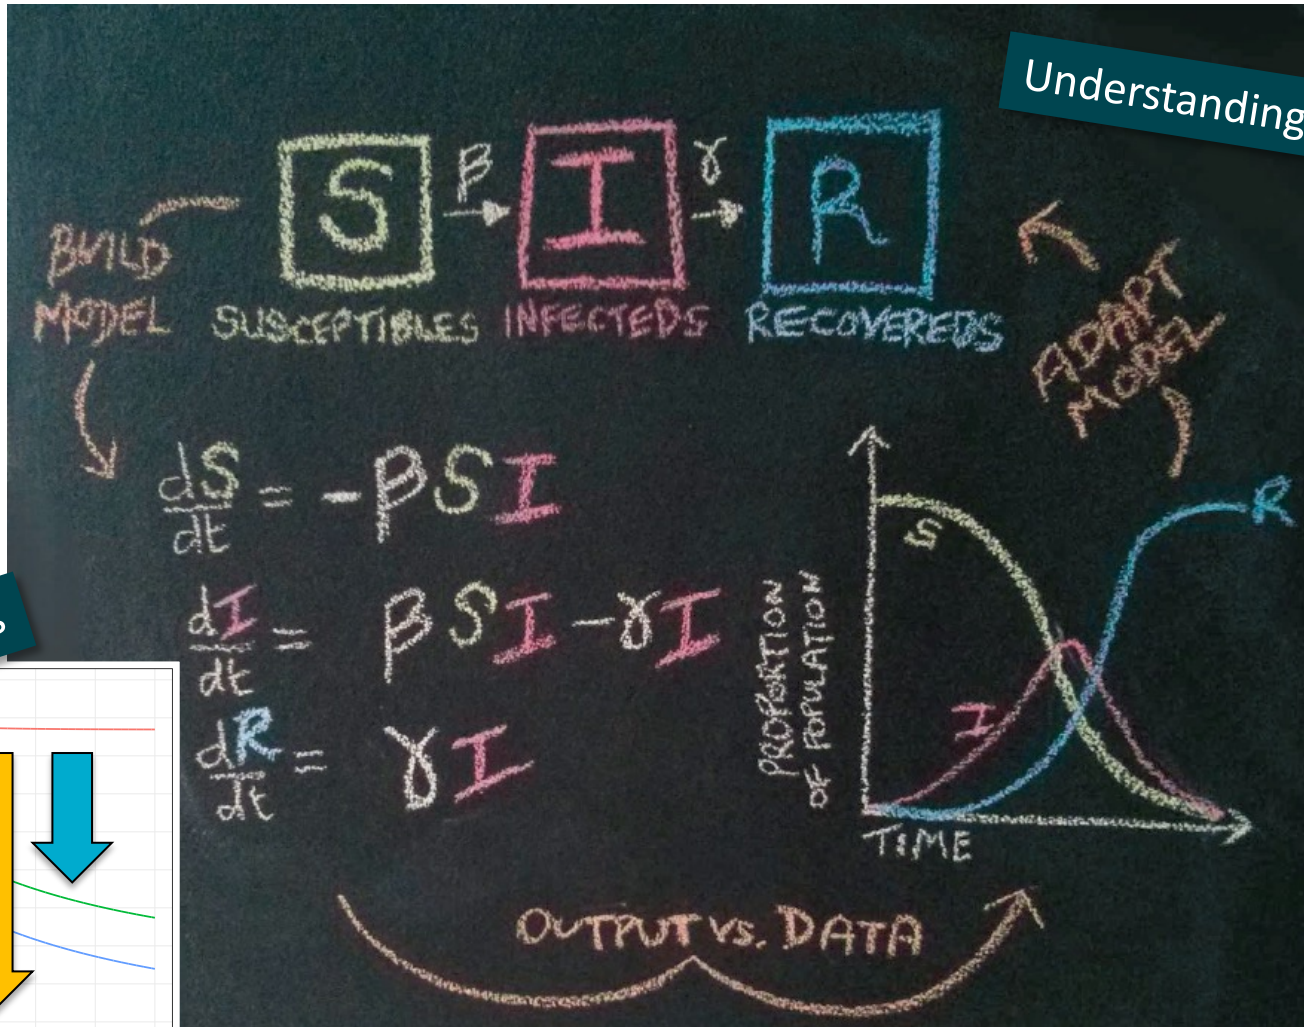 Understanding
S β I γ R
BUILD
MODEL
SUSCEPTIBLES INFECTEDS RECOVEREDS
ADAPT
MODEL
dS/dt = -βSI
dI/dt = βSI-γI
dR/dt = γI
S
I
R
PROPORTION
OF POPULATION
TIME
OUTPUT vs. DATA